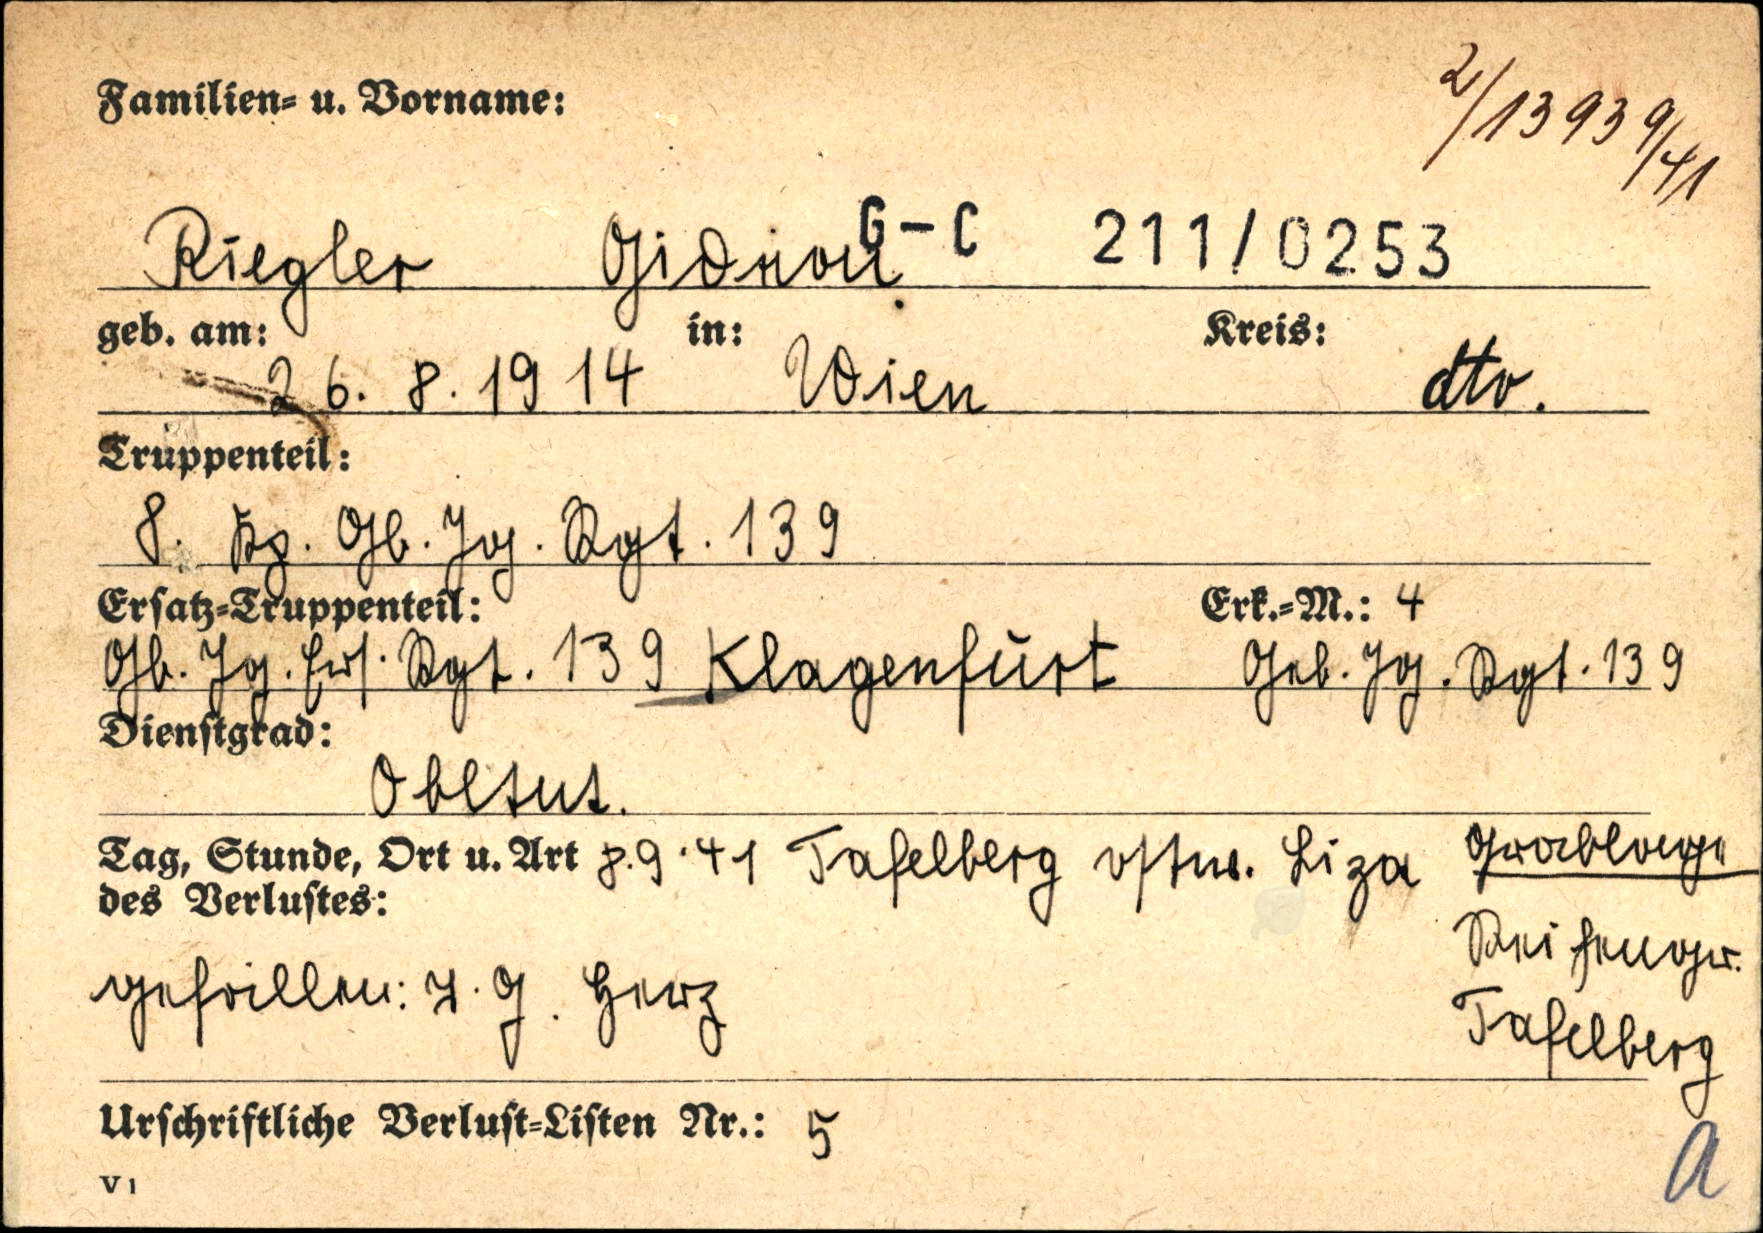 2/13939/41
Familien- u. Vorname:
G-C 211/0253
Riegler Gideon
geb. am: in: Kreis:
26. 8. 1914 Wien dto.
Truppenteil:
8. Kp. Gb. Jg. Rgt. 139
Ersatz-Truppenteil: Erk.-M.: 4
Gb. Jg. Ers. Rgt. 139 Klagenfurt Geb. Jg. Rgt. 139
Dienstgrad:
Obltnt.
Tag, Stunde, Ort u. Art 8.9.41 Tafelberg ostw. Liza Grablage
des Verlustes: Reihengr.
gefallen: I. G. Herz Tafelberg
Urschriftliche Verlust-Listen Nr.: 5
V 1 a